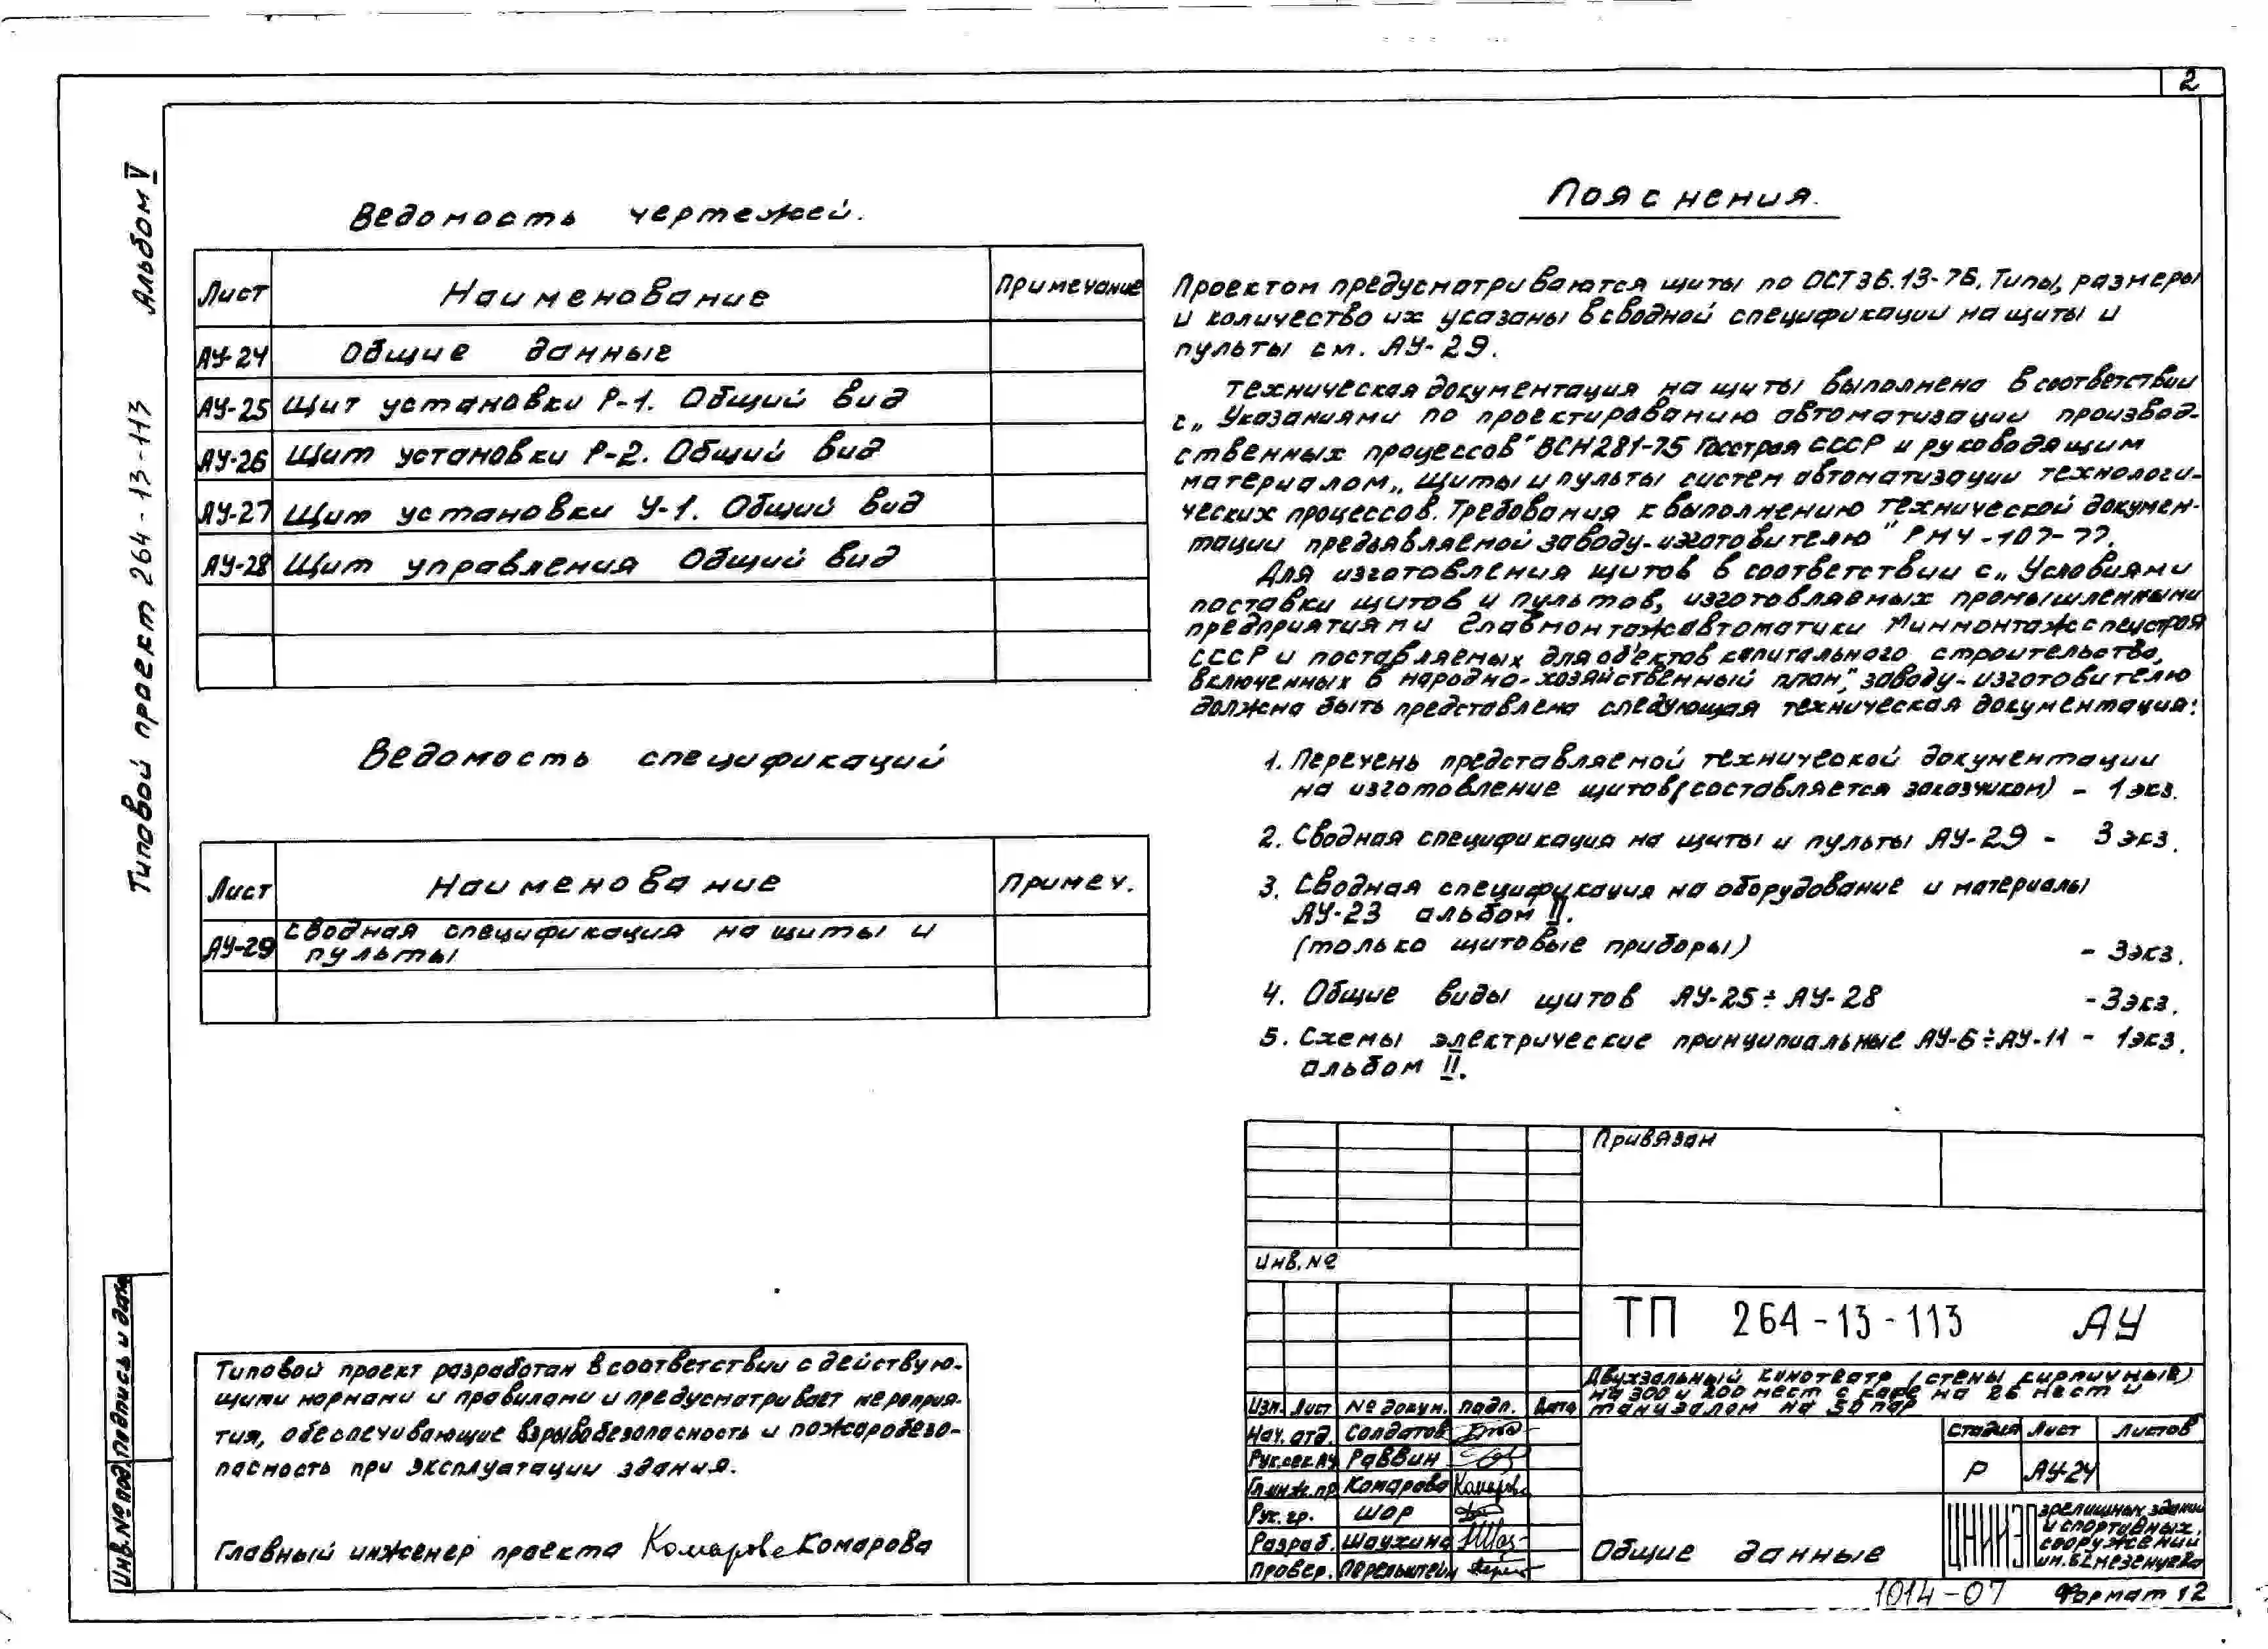 2
Типовой проект 264-13-113 Альбом V
Ведомость чертежей.
Лист Наименование Примечание
АУ-24 Общие данные
АУ-25 Щит установки Р-1. Общий вид
АУ-26 Щит установки Р-2. Общий вид
АУ-27 Щит установки У-1. Общий вид
АУ-28 Щит управления Общий вид
Ведомость спецификаций
Лист Наименование Примеч.
АУ-29 Сводная спецификация на щиты и
пульты
Пояснения.
Проектом предусматриваются щиты по ОСТ 36.13-76. Типы, размеры
и количество их указаны в сводной спецификации на щиты и
пульты см. АУ-29.
Техническая документация на щиты выполнена в соответствии
с „Указаниями по проектированию автоматизации производ-
ственных процессов" ВСН 281-75 Госстроя СССР и руководящим
материалом „Щиты и пульты систем автоматизации технологи-
ческих процессов. Требования к выполнению технической докумен-
тации предъявляемой заводу-изготовителю" РМ4-107-77.
Для изготовления щитов в соответствии с „Условиями
поставки щитов и пультов, изготовляемых промышленными
предприятиями Главмонтажавтоматики Минмонтажспецстроя
СССР и поставляемых для объектов капитального строительства,
включенных в народно-хозяйственный план", заводу-изготовителю
должна быть представлена следующая техническая документация:
1. Перечень представляемой технической документации
на изготовление щитов (составляется заказчиком) - 1 экз.
2. Сводная спецификация на щиты и пульты АУ-29 - 3 экз.
3. Сводная спецификация на оборудование и материалы
АУ-23 альбом II.
(только щитовые приборы) - 3 экз.
4. Общие виды щитов АУ-25÷АУ-28 - 3 экз.
5. Схемы электрические принципиальные АУ-6÷АУ-11 - 1 экз.
альбом II.
Типовой проект разработан в соответствии с действую-
щими нормами и правилами и предусматривает мероприя-
тия, обеспечивающие взрывобезопасность и пожаробезо-
пасность при эксплуатации здания.
Главный инженер проекта Комарова Комарова
Инв.№ под. Подпись и дата
Привязан
Инв.№
ТП 264-13-113 АУ
Двухзальный кинотеатр (стены кирпичные)
на 300 и 200 мест с кафе на 26 мест и
танцзалом на 50 пар
Изм. Лист № докум. подп. Дата
Нач. отд. Солдатов
Рук.сек.АУ Раввин
Гл.инж.пр. Комарова Комарова
Рук. гр. Шор
Разраб. Шаухина
Провер. Перельштейн
Стадия Лист Листов
Р АУ-24
Общие данные
ЦНИИЭП зрелищных зданий
и спортивных
сооружений
им. Б.С. Мезенцева
1014-07 Формат 12